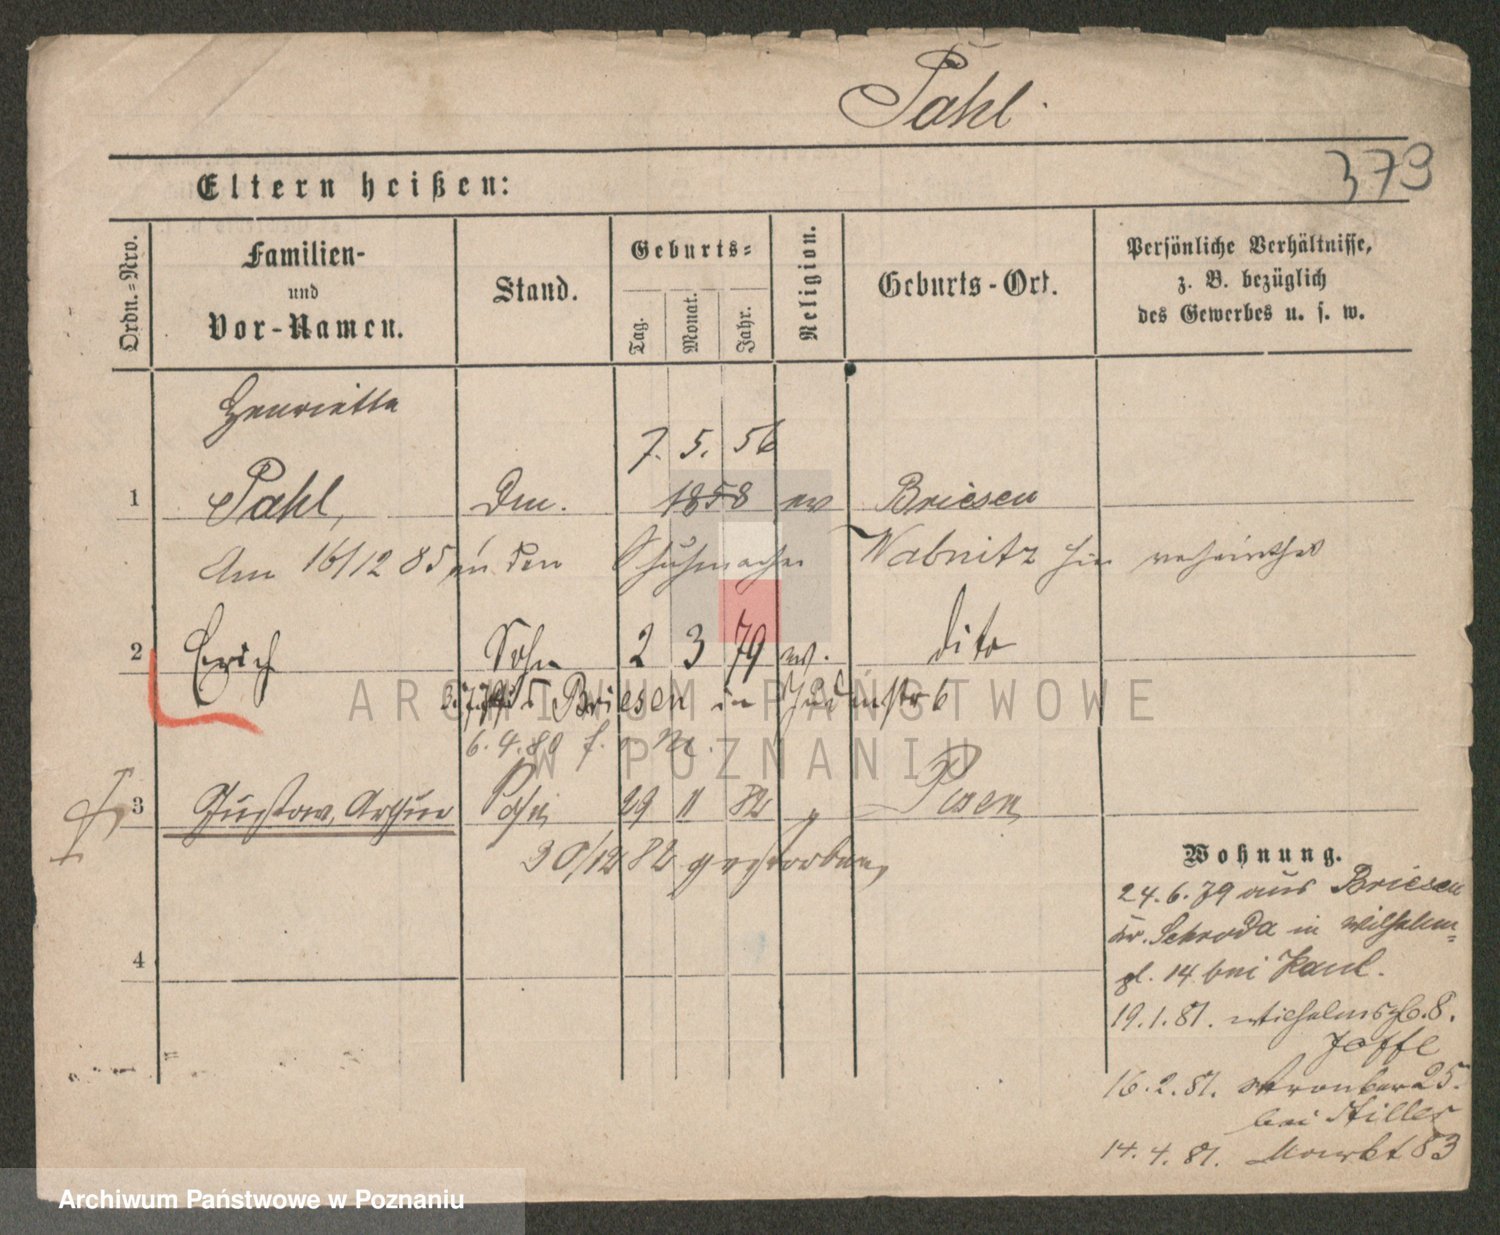 Pahl.
373
Eltern heißen:
Ordn.-Nro.
Familien-
und
Vor-Namen.
Stand.
Geburts-
Tag.
Monat.
Jahr.
Religion.
Geburts-Ort.
Persönliche Verhältnisse,
z. B. bezüglich
des Gewerbes u. s. w.
Henriette
7. 5. 56
1 Pahl, 1858 ev Briesen
Am 16/12 85 an den Schuhmacher Wabnitz hier verheirathet
2 Erich Sohn 2 3 79 ev. dito
Briesen in
6.4.80
3 Gustav, Arthur Sohn 29 11 82 Posen
30/12 82 gestorben,
4
Wohnung.
24.6.79 aus Briesen
Kr. Schroda in Wilhelm-
pl. 14 bei Kaul.
19.1.81. Wilhelmspl. 8.
Joffe
16.2.81. 25.
bei Hiller
14.4.81. Markt 83
ARCHIWUM PAŃSTWOWE
W POZNANIU
Archiwum Państwowe w Poznaniu